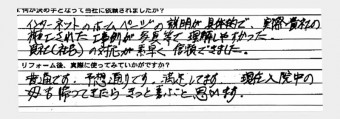 何が決め手となって当社に依頼されましたか?
インターネットのホームページの説明が具体的で、実際に貴社の
施工された工事例が多数で理解しやすかった。
貴社(社名)の対応が素早く信頼できました。
リフォーム後、実際に使ってみていかがですか?
普通です。予想通りです。満足してます。現在入院中の
も帰ってきたらきっと喜ぶことと思います。